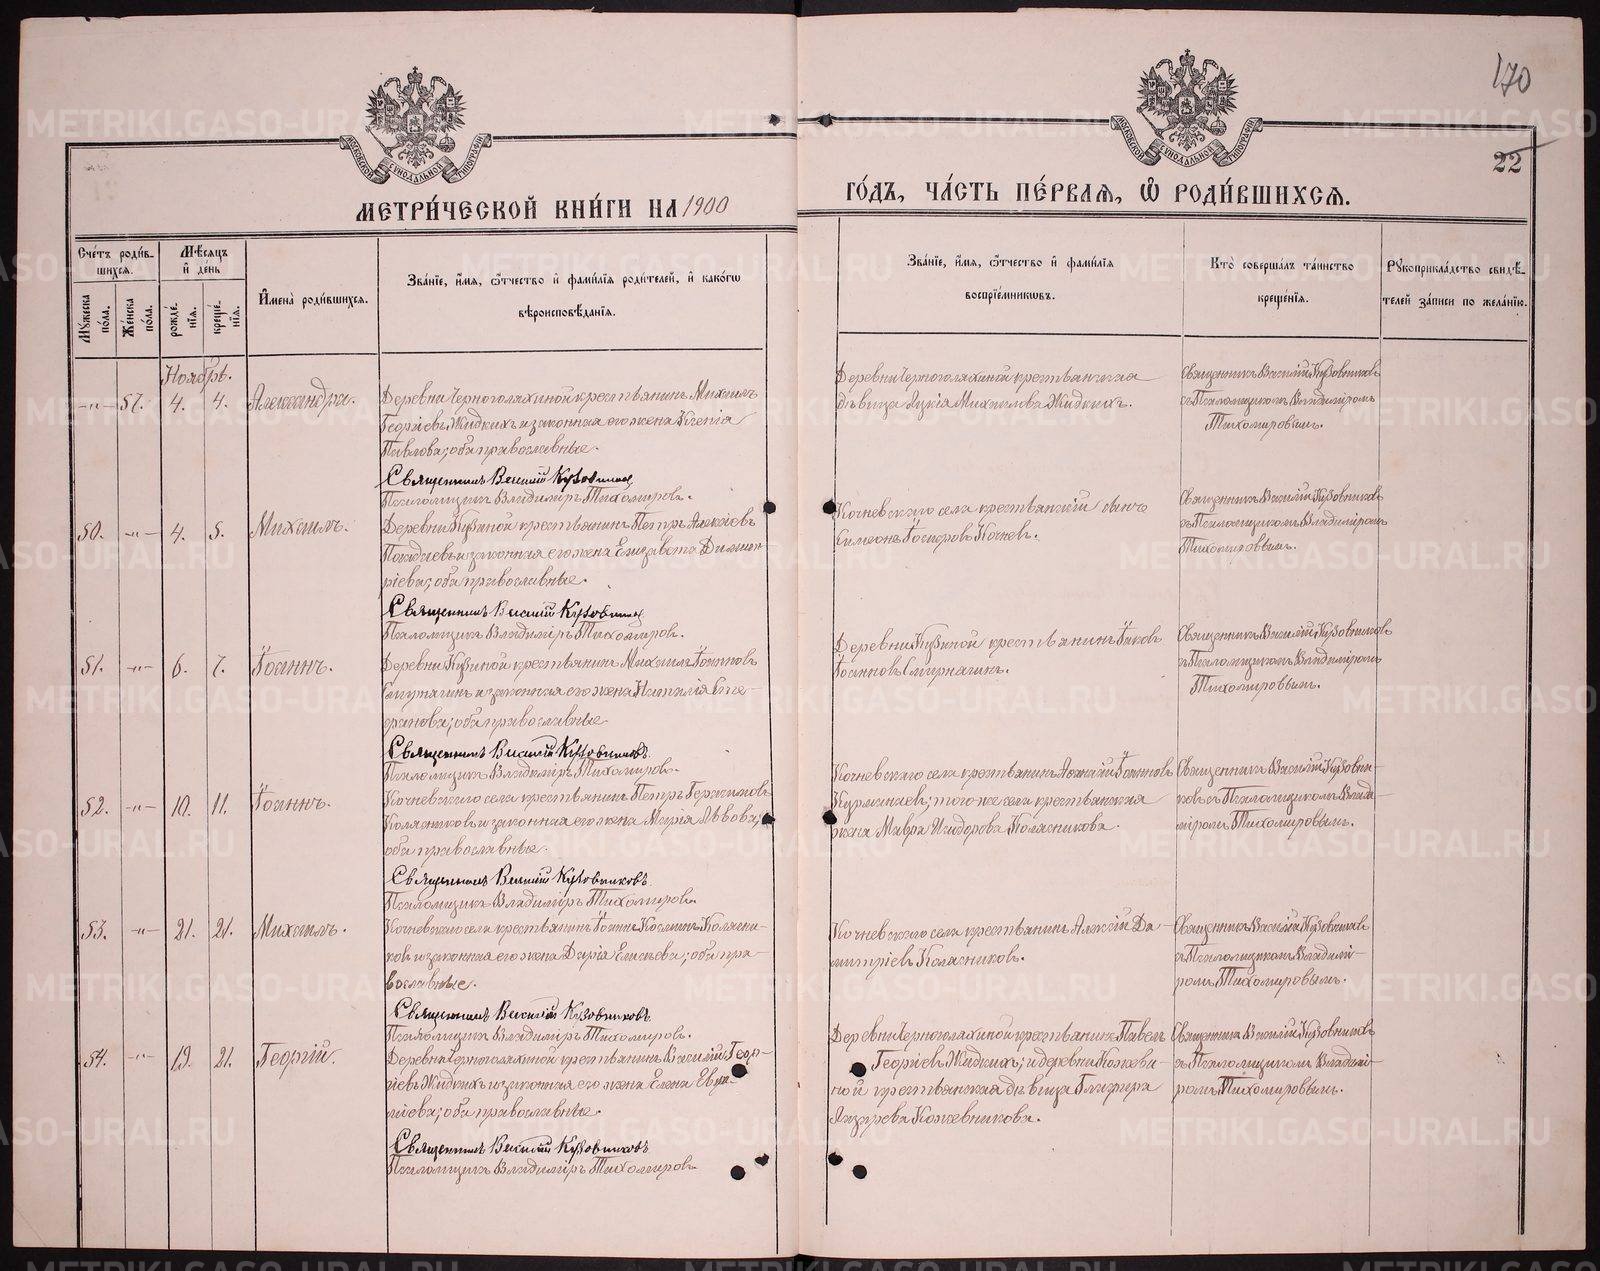 170
22
МОСКОВСКОЙ СѴНОДАЛЬНОЙ ТИПОГРАФІИ
МОСКОВСКОЙ СѴНОДАЛЬНОЙ ТИПОГРАФІИ
МЕТРИ́ЧЕСКОЙ КНИ́ГИ НА 1900
ГО́ДЪ, ЧА́СТЬ ПЕ́РВАЯ, Ѽ РОДИ́ВШИХСЯ.
Сче́тъ роди́в-
шихся.
Мѣ́сяцъ
и҆ де́нь
Мꙋ́жеска по́ла.
Же́нска по́ла.
рожде́нїя.
креще́нїя.
И҆мена̀ роди́вшихся.
Зва́нїе, и҆́мя, ѻ҆́тчество и҆ фами́лїя роди́телей, и҆ како́гѡ
вѣроисповѣ́данїя.
Зва́нїе, и҆́мя, ѻ҆́тчество и҆ фами́лїя
воспрїе́мникѡвъ.
Кто̀ соверша́лъ та́инство
креще́нїя.
Рꙋкоприкла́дство свидѣ́-
телей за́писи по жела́нїю.
Ноябрь.
-„- 57. 4. 4. Александра.
Деревни Черноголяхиной крестьянинъ Михаилъ
Георгіевъ Жидкихъ и законная его жена Ксенія
Павлова; оба православные.
Священникъ Василій Кузовниковъ
Псаломщикъ Владиміръ Тихомировъ.
Деревни Черноголяхиной крестьянская
дѣвица Михаилова Жидкихъ.
Священникъ Василій Кузовниковъ
съ Псаломщикомъ Владиміромъ
Тихомировымъ.
50. -„- 4. 5. Михаилъ.
Деревни Кузиной крестьянинъ Петръ Алексіевъ
и законная его жена Елизавета Димит-
ріева; оба православные.
Священникъ Василій Кузовниковъ
Псаломщикъ Владиміръ Тихомировъ.
Кочневскаго села крестьянскій сынъ
Симеонъ Кочневъ.
Священникъ Василій Кузовниковъ
съ Псаломщикомъ Владиміромъ
Тихомировымъ.
51. -„- 6. 7. Іоаннъ.
Деревни Кузиной крестьянинъ Михаилъ Іоанновъ
и законная его жена Наталія Сте-
фанова; оба православные.
Священникъ Василій Кузовниковъ
Псаломщикъ Владиміръ Тихомировъ.
Деревни Кузиной крестьянинъ Іаковъ
Іоанновъ
Священникъ Василій Кузовниковъ
съ Псаломщикомъ Владиміромъ
Тихомировымъ.
52. -„- 10. 11. Іоаннъ.
Кочневскаго села крестьянинъ Петръ Герасимовъ
Колясниковъ и законная его жена Марія Львова;
оба православные.
Священникъ Василій Кузовниковъ
Псаломщикъ Владиміръ Тихомировъ.
Кочневскаго села крестьянинъ Іоанновъ
того же села крестьянская
жена Мавра Исидорова Колясникова.
Священникъ Василій Кузовни-
ковъ съ Псаломщикомъ Влади-
міромъ Тихомировымъ.
53. -„- 21. 21. Михаилъ.
Кочневскаго села крестьянинъ Іоаннъ Косминъ Колясни-
ковъ и законная его жена Дарія Елисеева; оба пра-
вославные.
Священникъ Василій Кузовниковъ
Псаломщикъ Владиміръ Тихомировъ.
Кочневскаго села крестьянинъ Алексій Ди-
митріевъ Колясниковъ.
Священникъ Василій Кузовниковъ
съ Псаломщикомъ Владимі-
ромъ Тихомировымъ.
54. -„- 19. 21. Георгій.
Деревни Черноголяхиной крестьянинъ Василій Геор-
гіевъ Жидкихъ и законная его жена Елена
оба православные.
Священникъ Василій Кузовниковъ
Псаломщикъ Владиміръ Тихомировъ.
Деревни Черноголяхиной крестьянинъ Павелъ
Георгіевъ Жидкихъ; и деревни
крестьянская дѣвица Глафира
Лазарева Кожевникова.
Священникъ Василій Кузовниковъ
съ Псаломщикомъ Владимі-
ромъ Тихомировымъ.
METRIKI.GASO-URAL.RU